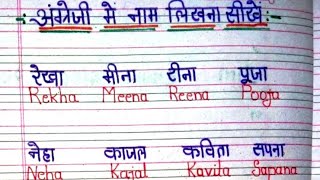 :- अंग्रेजी में नाम लिखना सीखें :-
रेखा मीना रीना पूजा
Rekha Meena Reena Pooja
नेहा काजल कविता सपना
Neha Kajal Kavita Sapana